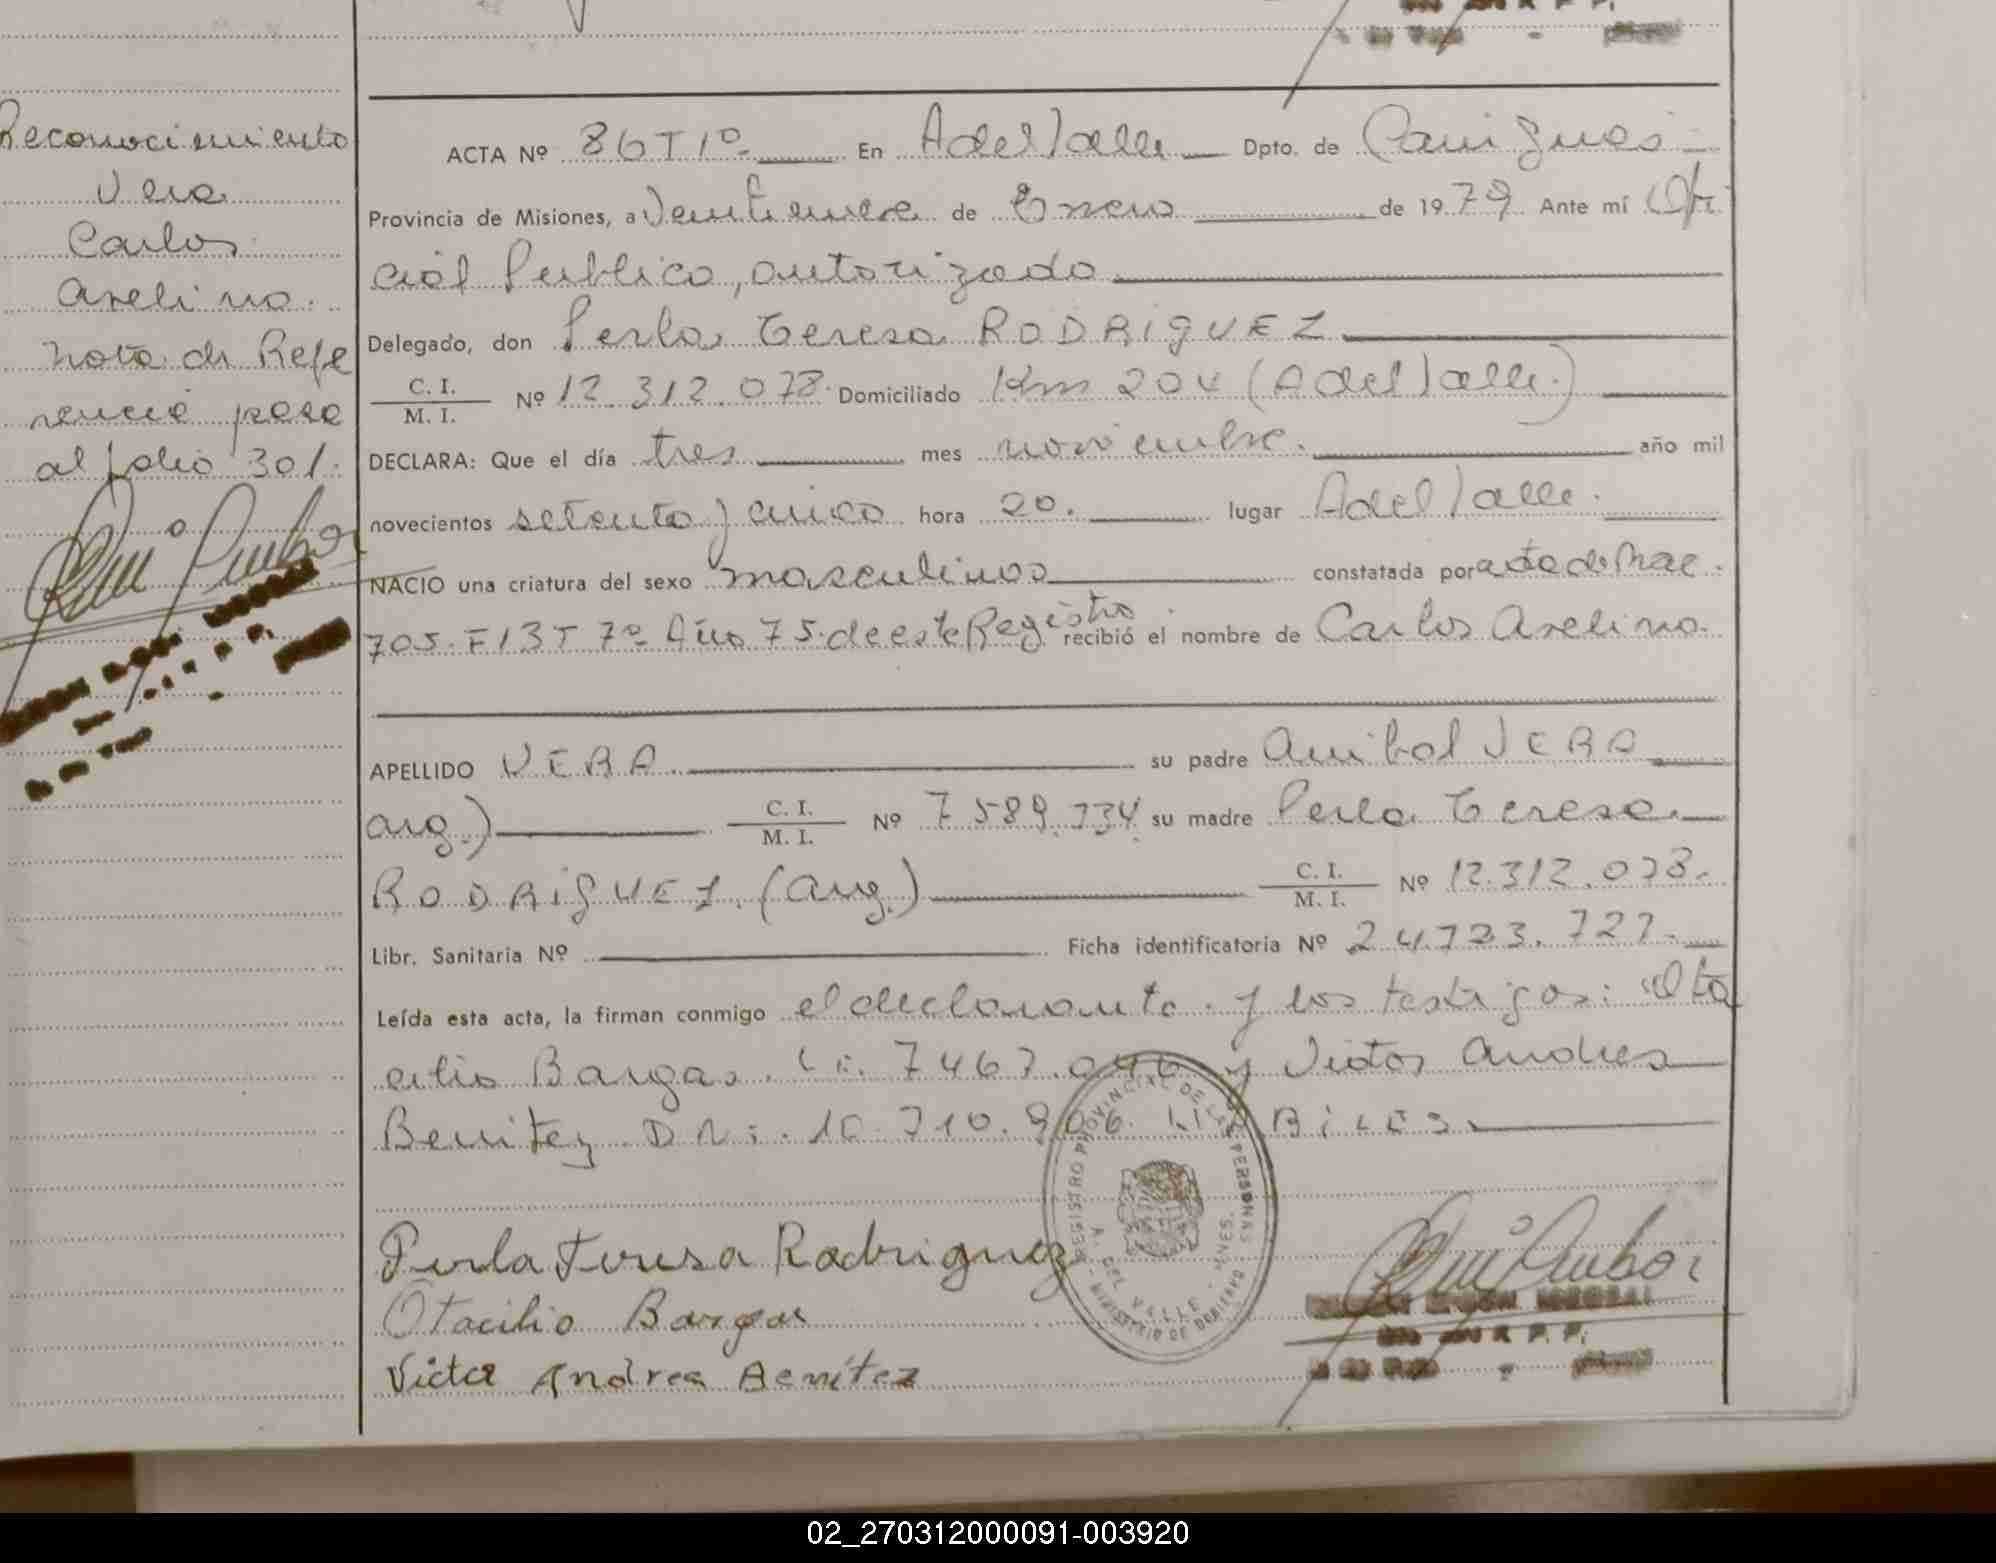 Reconocimiento
Vera
Carlos
Avelino.
nota de Refe
rencia pasa
al folio 301.
ACTA Nº 86 T 1º En A del Valle Dpto. de Cainguas
Provincia de Misiones, a Veintinueve de Enero de 1979 Ante mí Ofi
cial Publico, autorizado
Delegado, don Perla Teresa RODRIGUEZ
C. I.
M. I. Nº 12.312.078. Domiciliado Km 204 (A del Valle.)
DECLARA: Que el día tres mes noviembre. año mil
novecientos setenta y cinco hora 20. lugar A del Valle.
NACIO una criatura del sexo masculino constatada por acta de Nac.
705. F 13 T 7º Año 75. de este Registro. recibió el nombre de Carlos Avelino.
APELLIDO VERA. su padre Anibal VERA
arg.) C. I.
M. I. Nº 7.589.734 su madre Perla Teresa
RODRIGUEZ. (arg.) C. I.
M. I. Nº 12.312.078.
Libr. Sanitaria Nº Ficha identificatoria Nº 24.723.727.
Leída esta acta, la firman conmigo el declarante. y los testigos: Ota
cilio Bargas. L.E. 7467.046 y Victor Andres
Benitez D N i. 10.710.906. HABILES.
REGISTRO PROVINCIAL DE LAS PERSONAS
A. DEL VALLE - MNES.
MINISTERIO DE GOBIERNO
Perla Teresa Rodriguez
Otacilio Bargas
Victor Andres Benítez
02_270312000091-003920